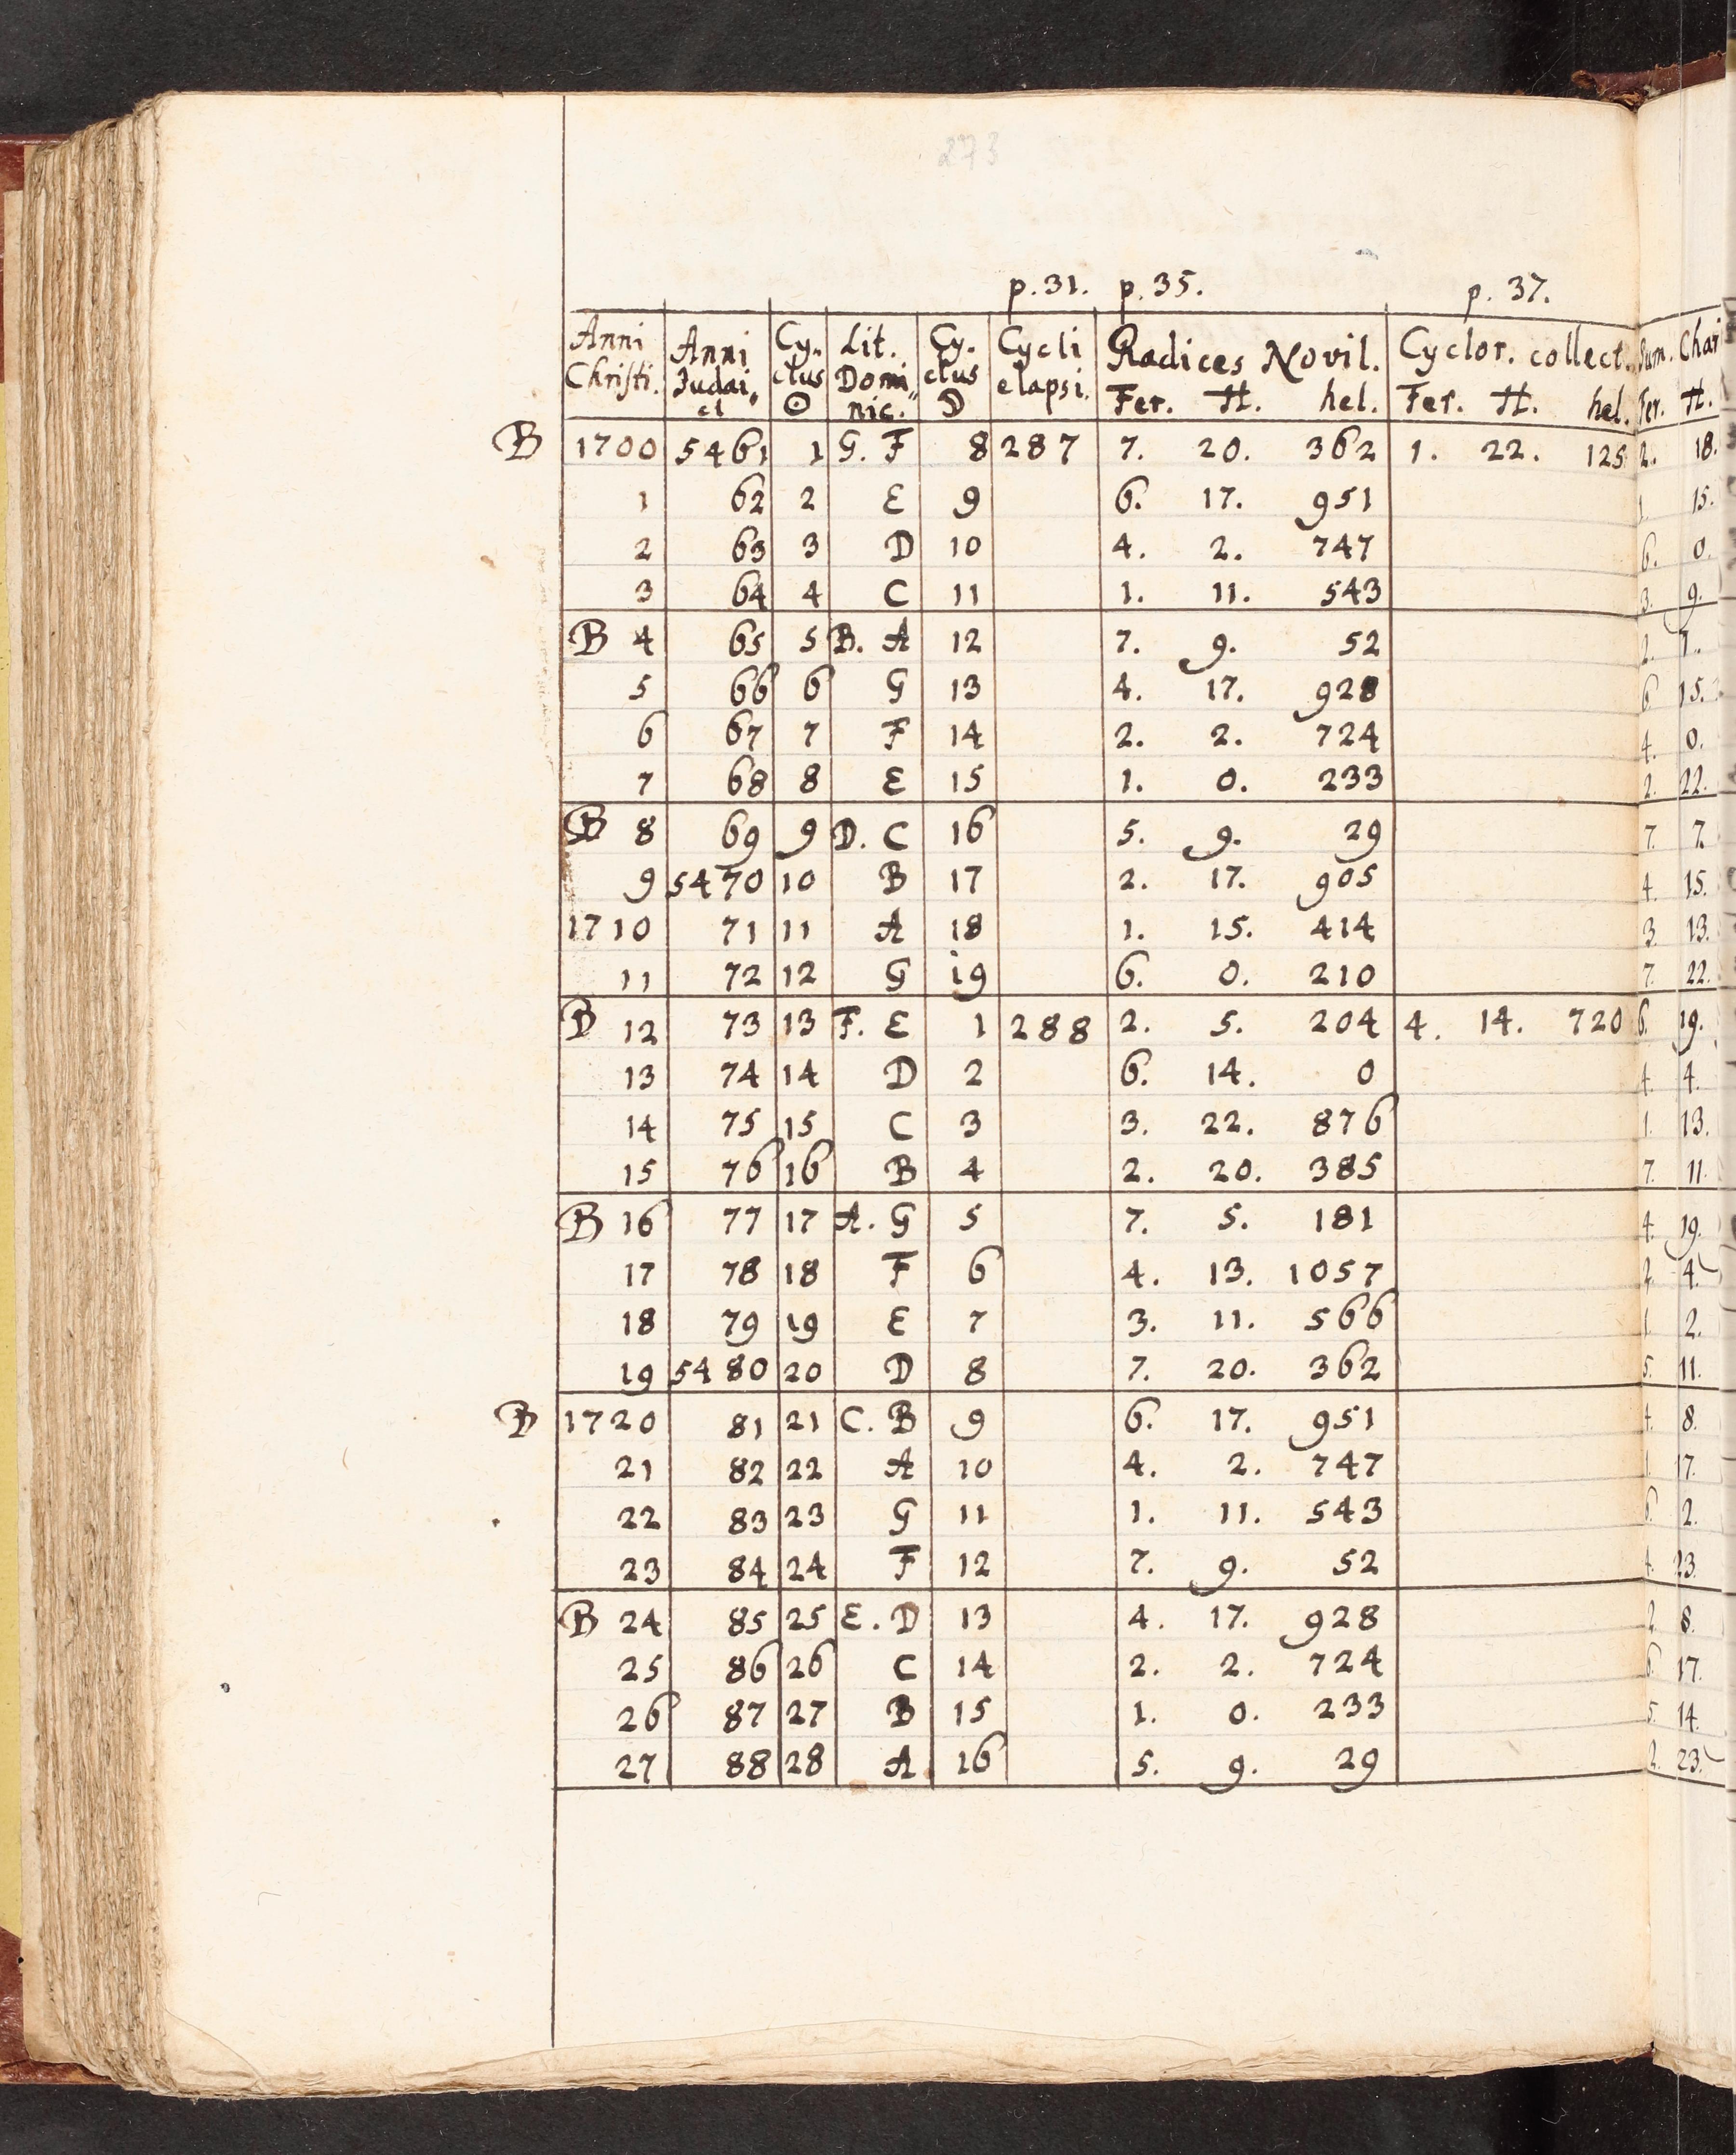 273
p. 31. p. 35. p. 37.
Anni Christi. Anni Judaici Cyclus ☉ Lit. Dominic. Cyclus ☽ Cycli elapsi. Radices Novil. Fer. H. hel. Cyclor. collect. Fer. H. hel. Sum. Fer. Char H.
B 1700 5461 1 G. F 8 287 7. 20. 362 1. 22. 125 2. 18.
1 62 2 E 9 6. 17. 951 1. 15.
2 63 3 D 10 4. 2. 747 6. 0.
3 64 4 C 11 1. 11. 543 3. 9.
B 4 65 5 B. A 12 7. 9. 52 2. 7.
5 66 6 G 13 4. 17. 928 6 15.
6 67 7 F 14 2. 2. 724 4. 0.
7 68 8 E 15 1. 0. 233 2. 22.
B 8 69 9 D. C 16 5. 9. 29 7. 7.
9 5470 10 B 17 2. 17. 905 4. 15.
1710 71 11 A 18 1. 15. 414 3 13.
11 72 12 G 19 6. 0. 210 7. 22.
B 12 73 13 F. E 1 288 2. 5. 204 4. 14. 720 6. 19.
13 74 14 D 2 6. 14. 0 4. 4.
14 75 15 C 3 3. 22. 876 1. 13.
15 76 16 B 4 2. 20. 385 7. 11.
B 16 77 17 A. G 5 7. 5. 181 4. 19.
17 78 18 F 6 4. 13. 1057 2. 4.
18 79 19 E 7 3. 11. 566 1. 2.
19 5480 20 D 8 7. 20. 362 5. 11.
B 1720 81 21 C. B 9 6. 17. 951 4. 8.
21 82 22 A 10 4. 2. 747 1. 17.
22 83 23 G 11 1. 11. 543 6. 2.
23 84 24 F 12 7. 9. 52 4. 23.
B 24 85 25 E. D 13 4. 17. 928 2. 8.
25 86 26 C 14 2. 2. 724 6. 17.
26 87 27 B 15 1. 0. 233 5. 14.
27 88 28 A 16 5. 9. 29 2. 23.